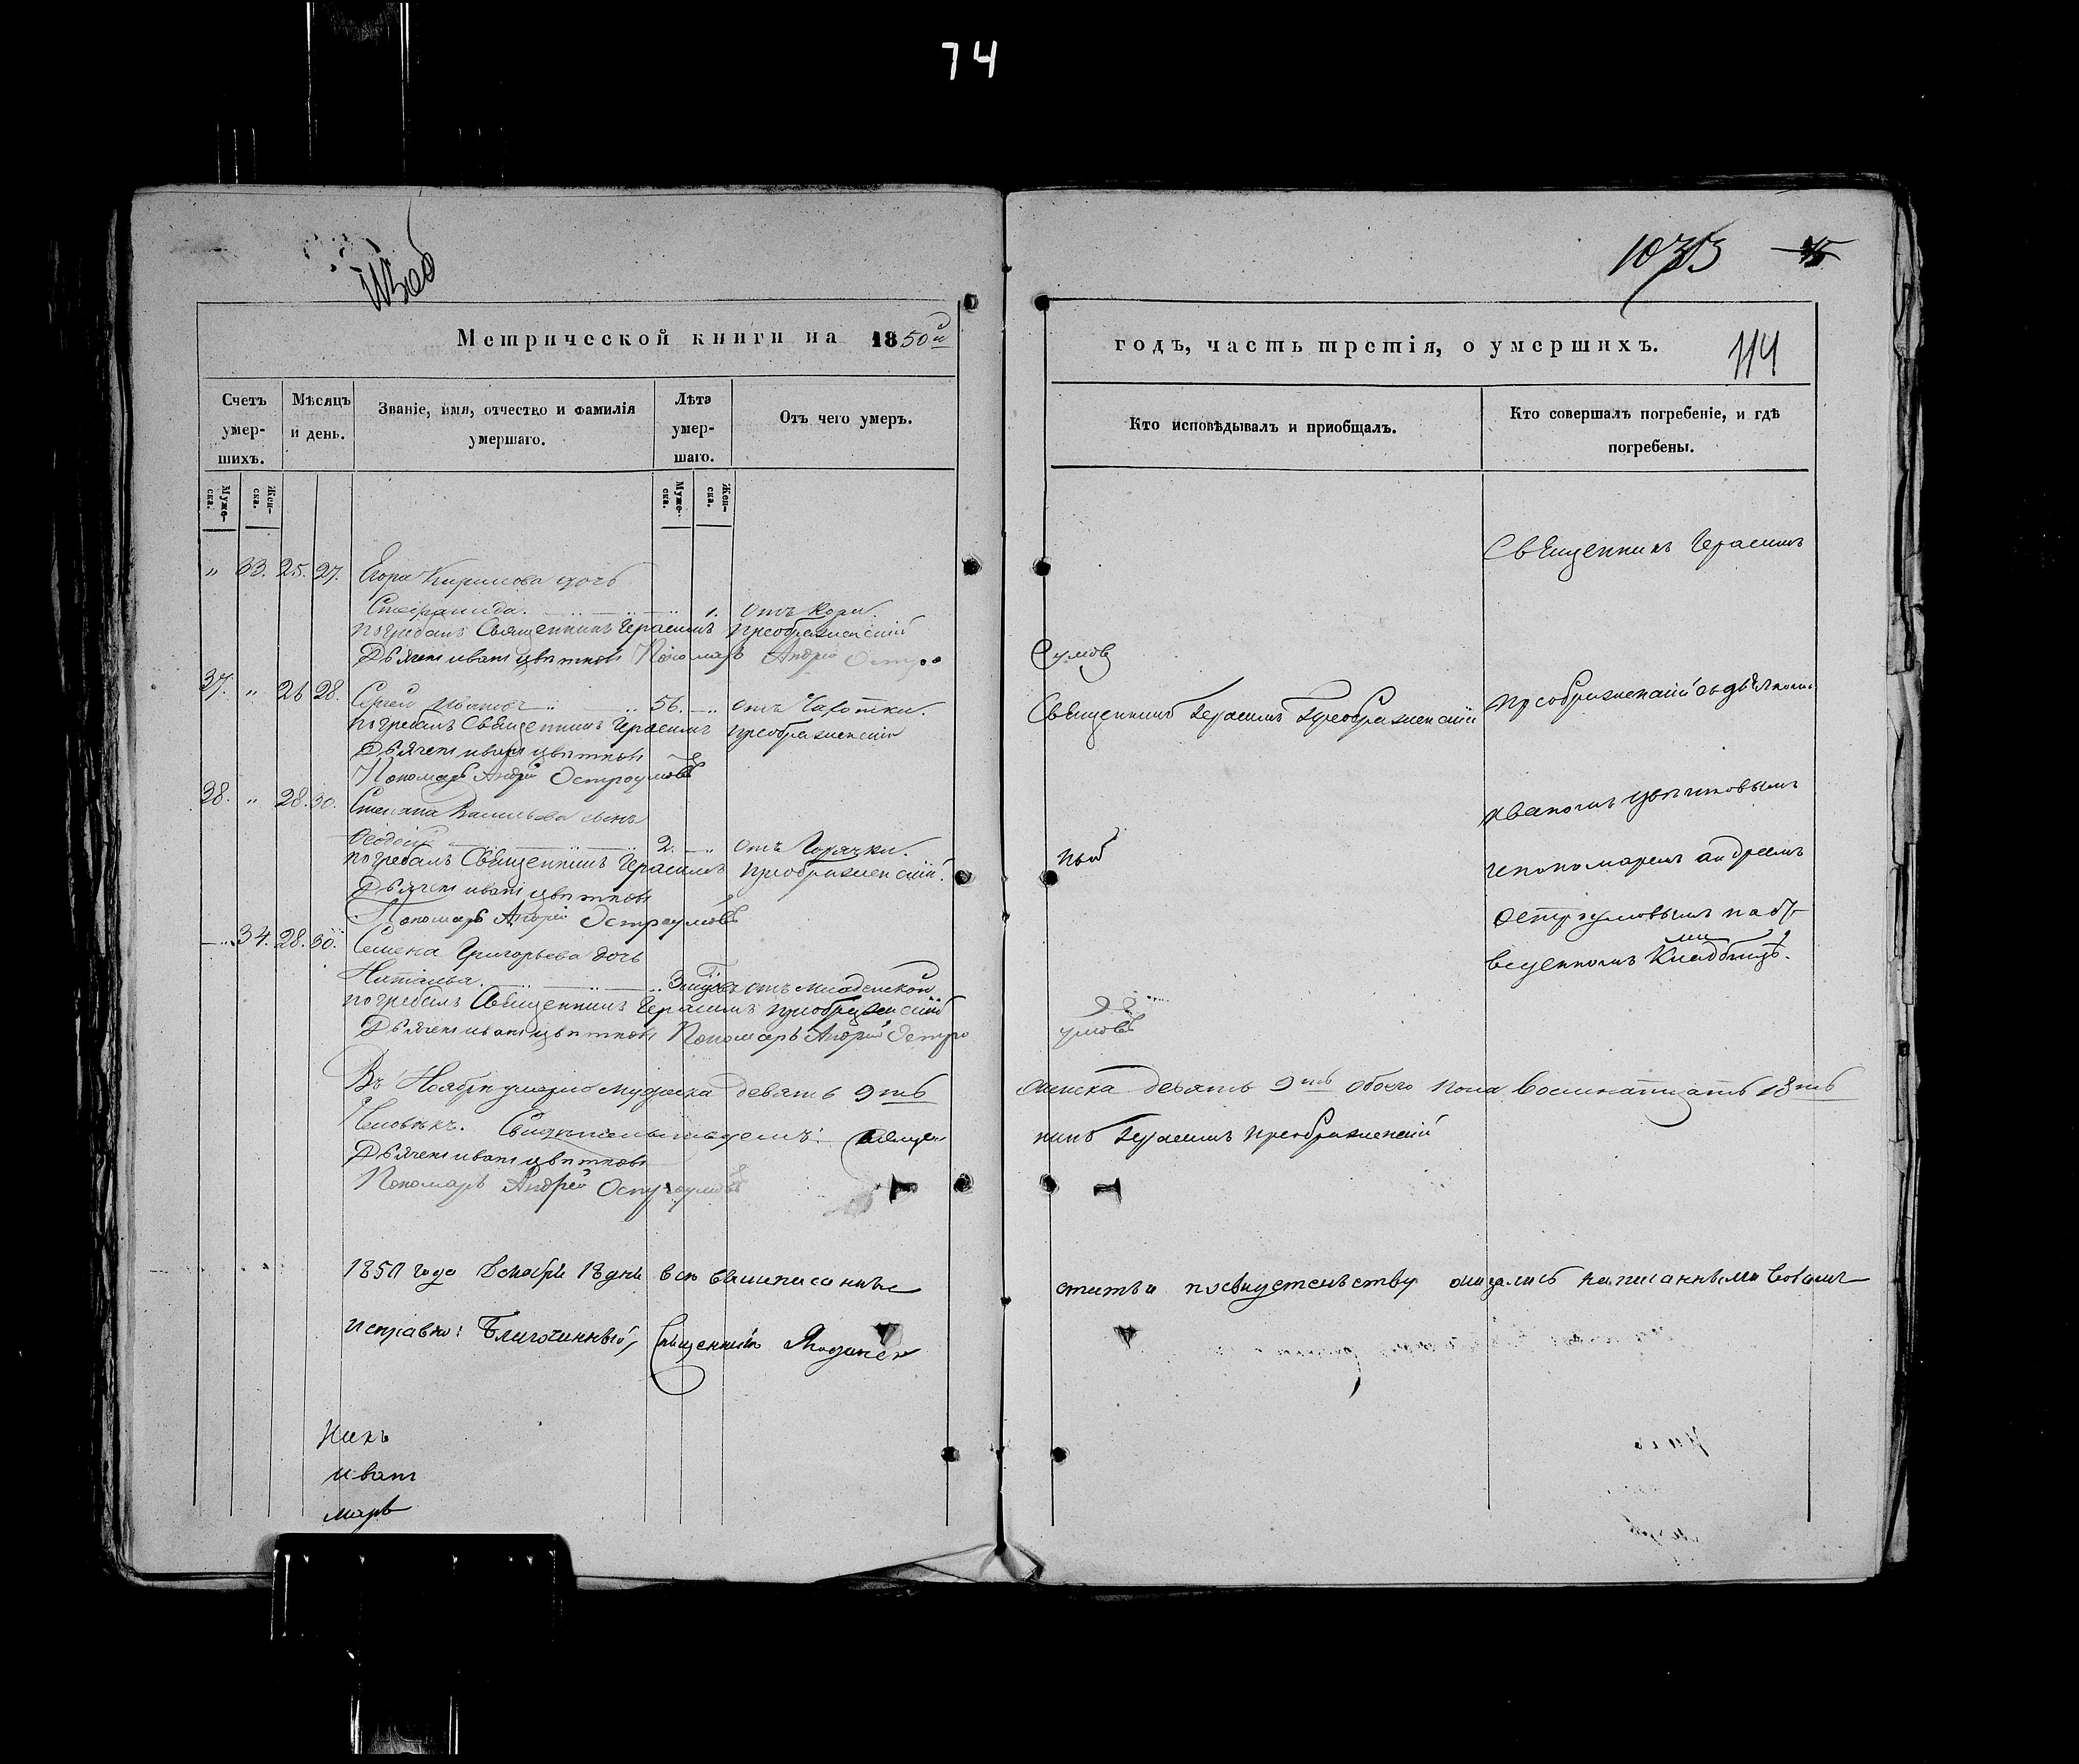 74
1033 45
Метрической книги на 1850й
годъ, часть третія, о умершихъ.
114
Счетъ умер-шихъ.
Мѣсяцъ и день.
Званіе, имя, отчество и фамилія умершаго.
Лѣта умер-шаго.
Отъ чего умеръ.
Кто исповѣдывалъ и приобщалъ.
Кто совершалъ погребеніе, и гдѣ погребены.
Муже-ска.
Жен-ска.
Муже-ска.
Жен-ска.
" 33. 25. 27. Егора Кирилова дочь
Степанида. 1. отъ кори.
погребалъ Священникъ Герасимъ Преображенскій
Дьячекъ иванъ цвѣтковъ Пономарь Андрей Остро
умовъ
37. " 26 28. Сергей Ивановъ 56. " отъ Чахотки.
Священникъ Герасимъ Преображенскій
погребалъ Священникъ Герасимъ преображенскій
Дьячекъ иванъ цвѣтковъ
Пономарь Андрей Остроумовъ
38. " 28. 30. Степана Васильева сынъ
Ѳеодосій 2. " отъ Горячки.
погребалъ Священникъ Герасимъ Преображенскій.
Дьячекъ иванъ цвѣтковъ
Пономарь Андрей Остроумовъ
34. 28. 30. Семена Григорьева дочь
Наталья. отъ младенской
погребалъ Священникъ Герасимъ преображенскій
Дьячекъ иванъ цвѣтковъ Пономарь Андрей Остро
умовъ
Священникъ Герасимъ
Преображенскій съ дьячкомъ
иваномъ цвѣтковымъ
и пономаремъ андреемъ
Остроумовымъ на от-
веденномъ Кладбищѣ.
Въ Ноябрѣ умерло мужеска девять 9ть женска девять 9ть обоего пола восемнатцать 18ть
Человѣкъ. Свидѣтельствуемъ: Священникъ Герасимъ преображенскій
Дьячекъ иванъ цвѣтковъ
Пономарь Андрей Остроумовъ
1850 года Декабря 18 дня всѣ вышеписанные статьи по свидетельству оказались написанными
исправно: Благочинный, Священникъ
никъ
иванъ
марь